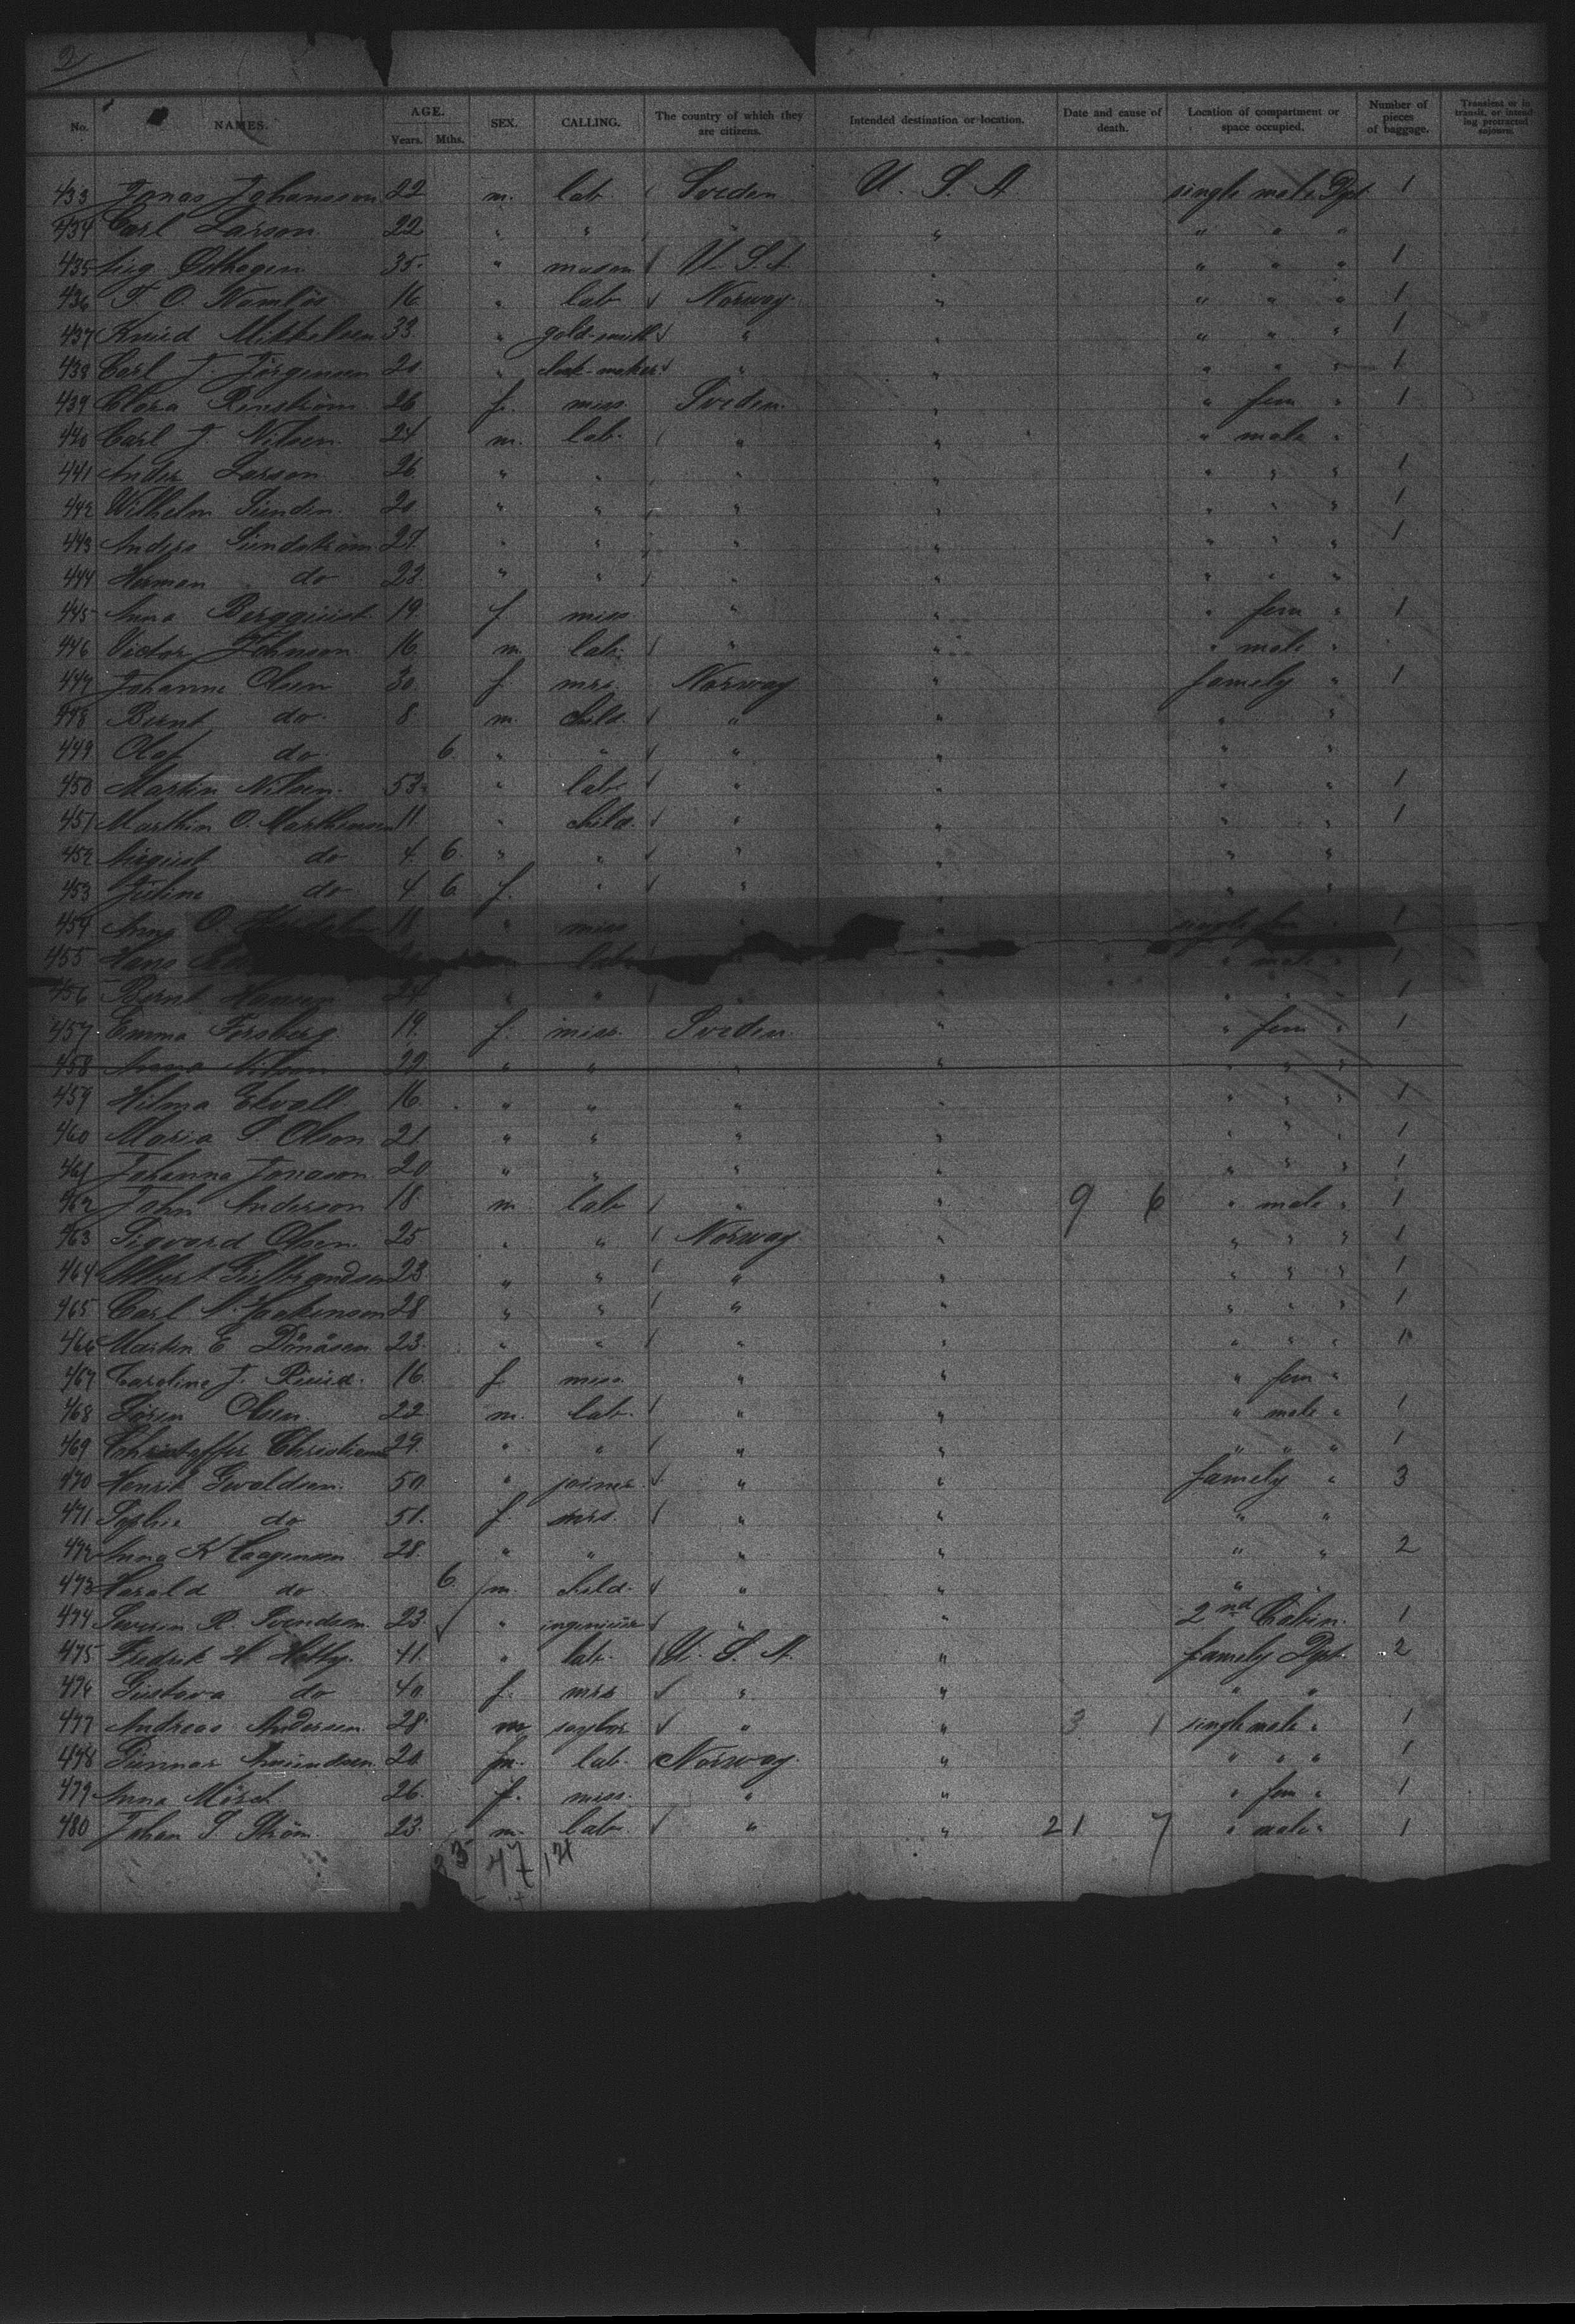 No. NAMES. AGE. Years. Mths. SEX. CALLING. The country of which they are citizens. Intended destination or location. Date and cause of death. Location of compartment or space occupied. Number of pieces of baggage. Transient or in transit, or intending protracted sojourn.
433 Jonas Johansson 22 m. lab Sweden U. S. A single male Dpt 1
434 Carl Larson 22 " " " " " " "
435 Aug. Osthagen 35 " mason U. S. A. " " " " 1
436 T. O. 16 " lab Norway " " " " 1
437 Knud Mikkelsen 33 " gold-smith " " " " " 1
438 Carl J. Jörgensen 20 " clock-maker " " " " " 1
439 Clara Renström 26 f. miss Sweden " " fem " 1
440 Carl J. Nilsen 24 m. lab. " " " male "
441 Ander Larson 26 " " " " " " " 1
442 Wilhelm Sundin 20 " " " " " " " 1
443 Anders Sundström 27 " " " " " " " 1
444 Herman do 23 " " " " " " "
445 Anna Bergquist 19 f miss " " " fem " 1
446 Victor Johnson 16 m. lab. " " " male "
447 Johanne Olsen 30 f mrs. Norway " famely " 1
448 Bernt do 8 m. child. " " " "
449 Olaf do 6 " " " " " "
450 Martin Nilsen 53 " lab " " " " 1
451 Marthin O. Marthinsen 11 " child. " " " " 1
452 August do 4 6 " " " " " "
453 Juline do 4 6 f. " " " " "
454 Anna O. 18 " miss " " single fem " 1
455 Hans lab " " " male " 1
456 Bernt Hansen 24 " " " " " " " 1
457 Emma Forsberg 19 f. miss Sweden " " fem " 1
458 Anna Nilson 22 " " " " " " "
459 Hilma Ekvall 16 " " " " " " " 1
460 Maria S. Olson 21 " " " " " " " 1
461 Johanna Jonason 20 " " " " " " " 1
462 John Anderson 18 m lab " " 9 6 " male " 1
463 Sigvard Olsen 25 " " Norway " " " " 1
464 Albert Gulbrandsen 23 " " " " " " " 1
465 Carl N. Haakenson 28 " " " " " " " 1
466 Martin E. Dönåsen 23 " " " " " " " 1
467 Caroline J. Ruud. 16 f miss " " " fem "
468 Sören Olsen 22 m. lab " " " male " 1
469 Christoffer 29 " " " " " " " 1
470 Henrik 50 " joiner " " famely " 3
471 Sophie do 51 f. mrs. " " " "
472 Anna K Caagensen 28 " " " " " " 2
473 Harald do 6 m. child. " " " "
474 Severin R. Svendsen 23 " ingenieur " " 2nd Cabin. 1
475 Fredrik H. 41 " lab. U. S. A. " famely Dpt. 2
476 Gustava do 40 f. mrs " " " "
477 Andreas Andersen 28 m saylor " " 3 1 single male " 1
478 Gunnar Amundsen 20 m. lab. Norway " " " " 1
479 Anna Mörch 26 f. miss. " " " fem " 1
480 Johan S Ström 23 m. lab. " " 21 7 " male " 1
47 121